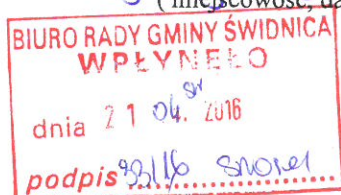 (miejscowość, da
BIURO RADY GMINY ŚWIDNICA
WPŁYNĘŁO
dnia 21 04. 2016
podpis 33/16